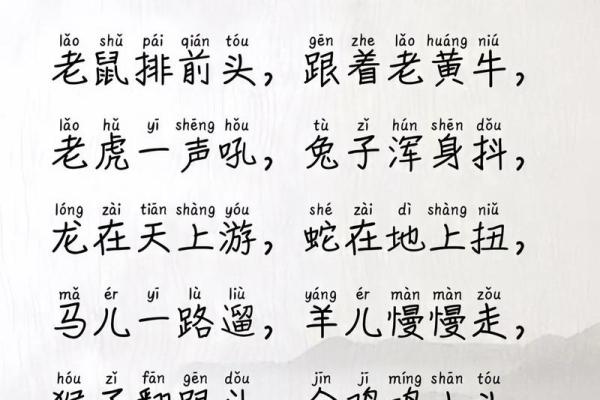 lǎo shǔ pái qián tóu gēn zhe lǎo huáng niú
老鼠排前头，跟着老黄牛，
lǎo hǔ yī shēng hǒu tù zǐ hún shēn dǒu
老虎一声吼，兔子浑身抖，
lóng zài tiān shàng yóu shé zài dì shàng niǔ
龙在天上游，蛇在地上扭，
mǎ ér yī lù liù yáng ér màn màn zǒu
马儿一路遛，羊儿慢慢走，
hóu zǐ fān gēn dǒu jīn jī míng shān tóu
猴子翻跟头 金鸡鸣山头